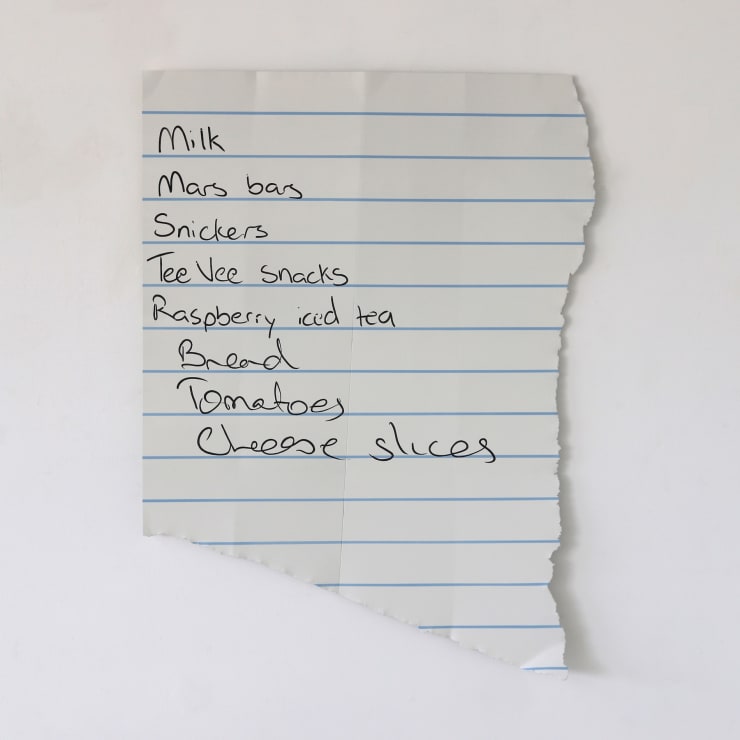 Milk
Mars bars
Snickers
Tee Vee snacks
Raspberry iced tea
Bread
Tomatoes
Cheese slices